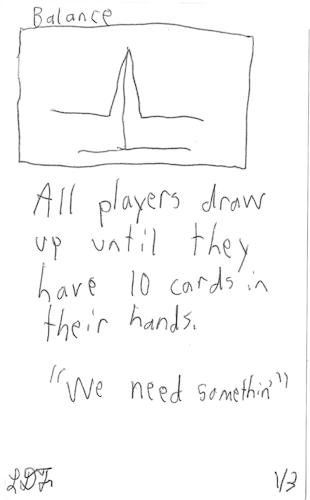 Balance
All players draw
up until they
have 10 cards in
their hands.
"We need somethin'"
LDF 1/3